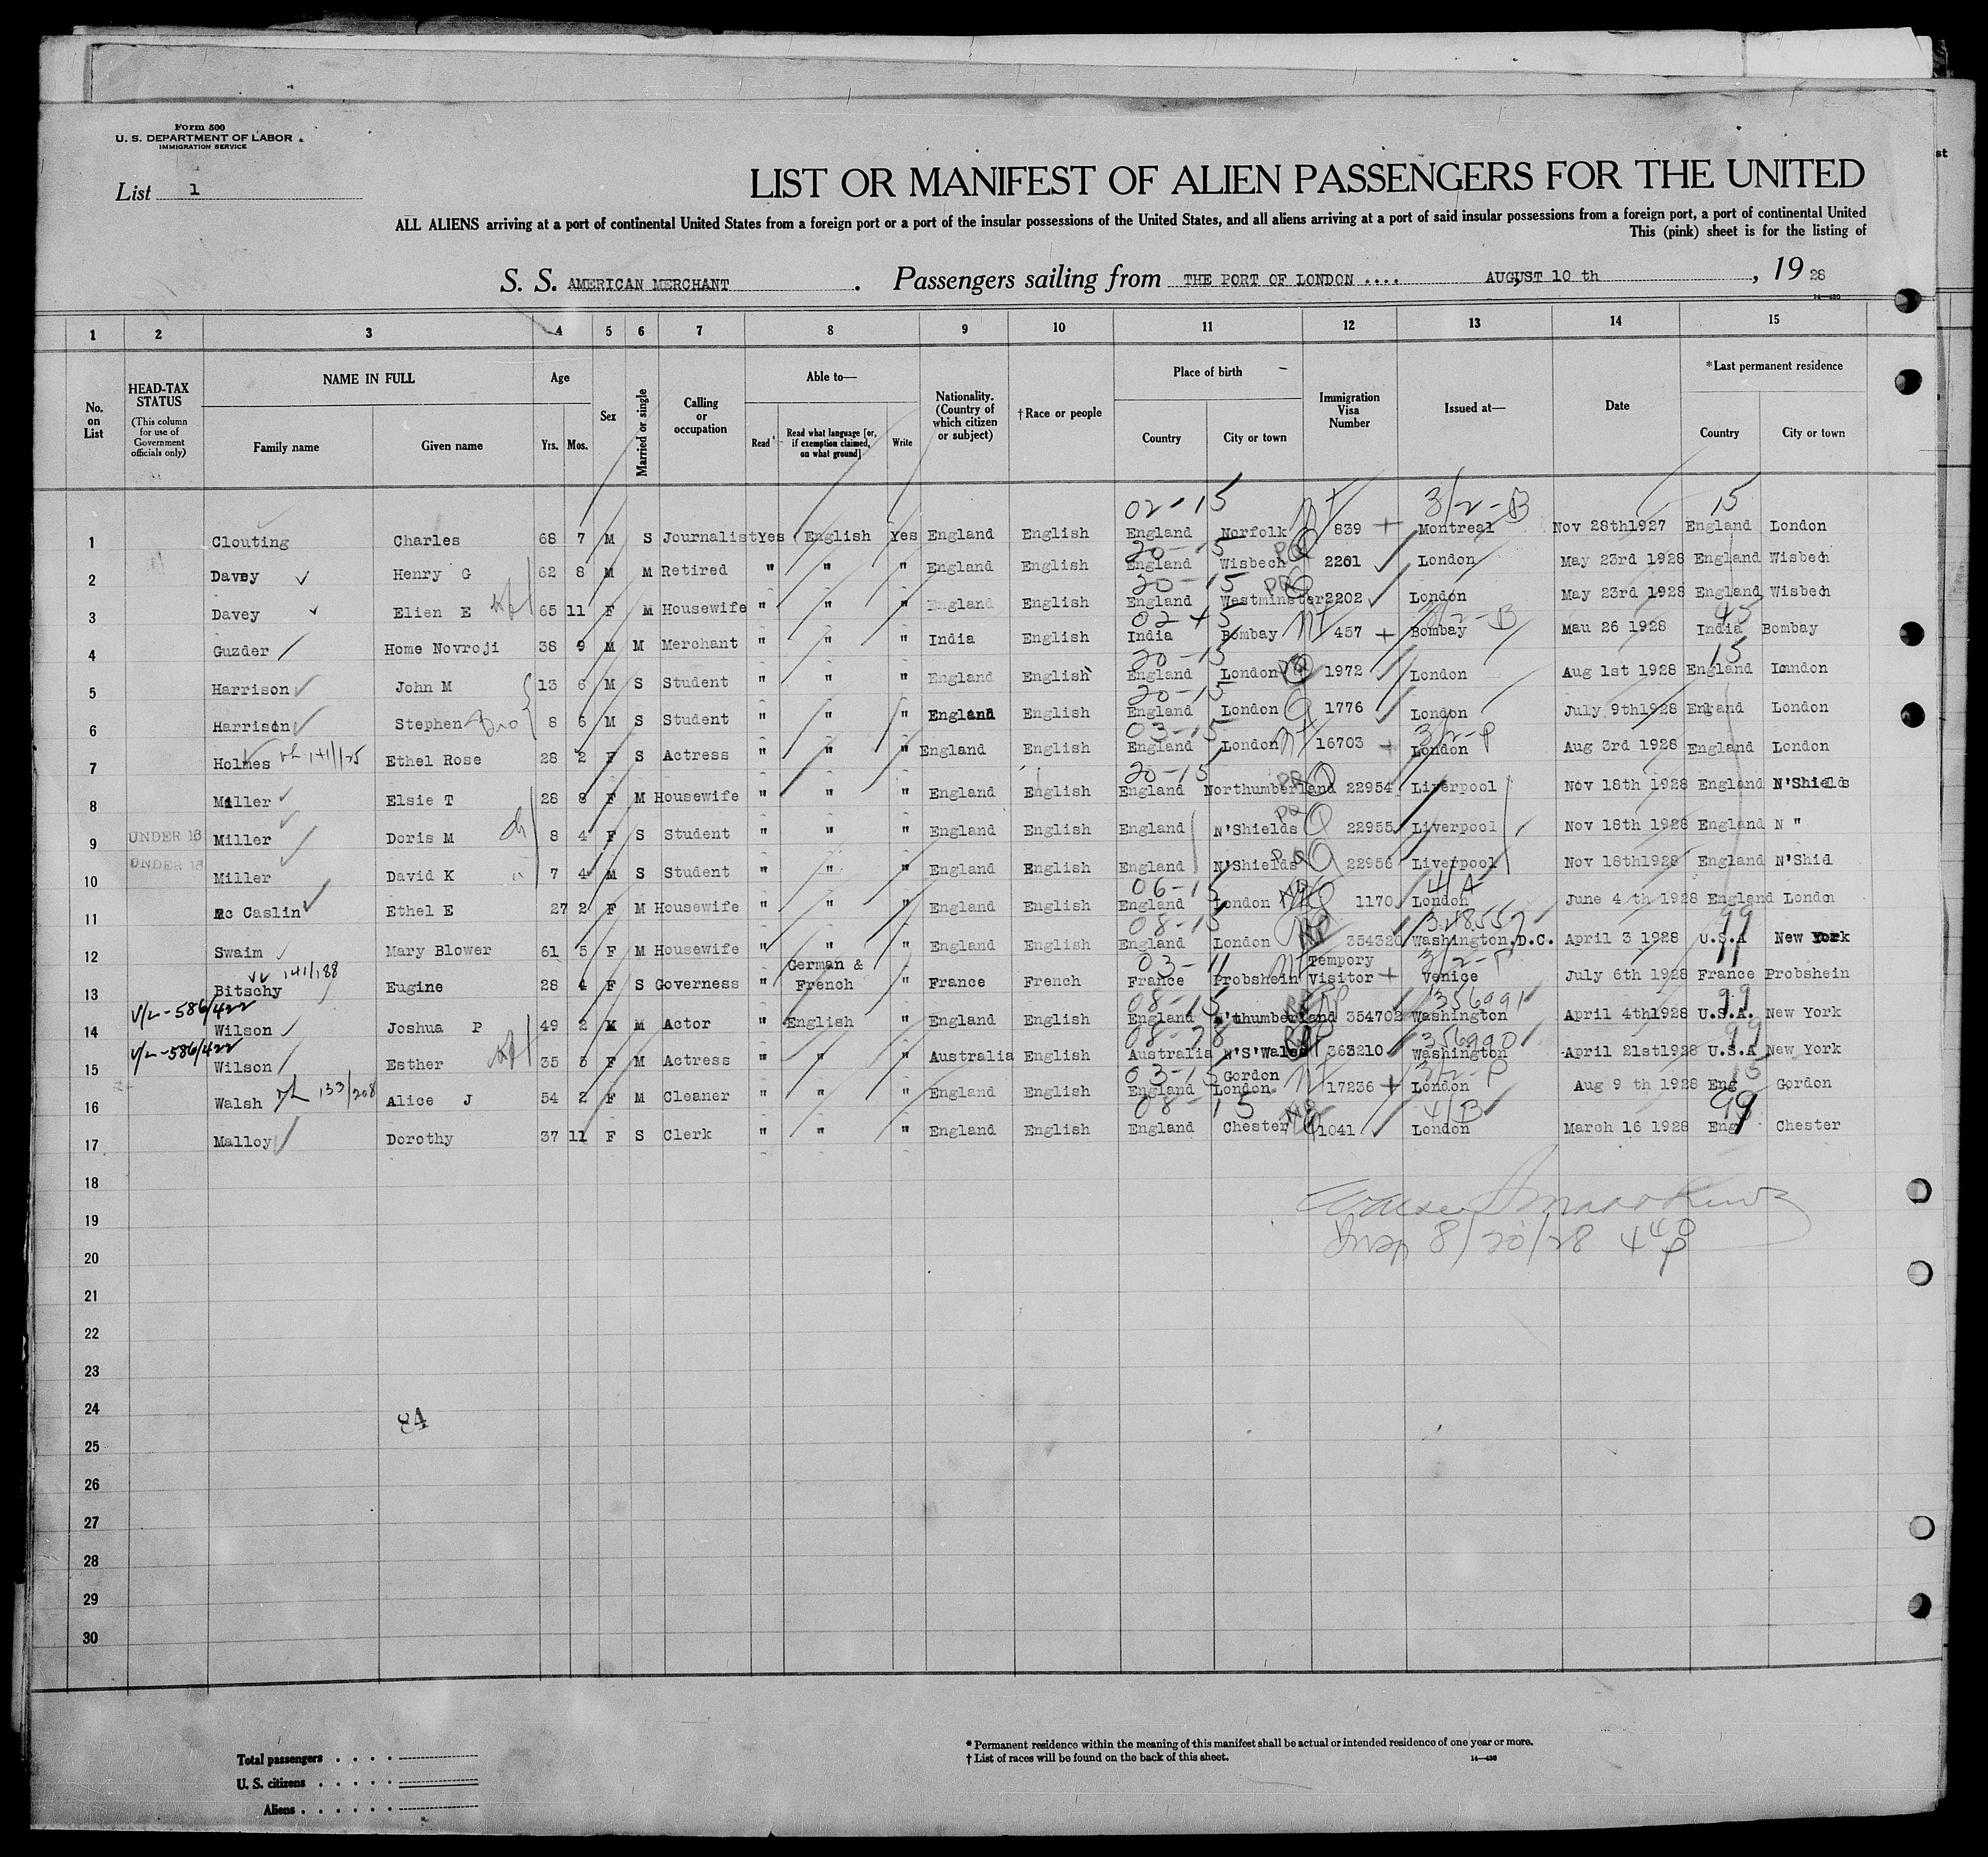 Form 500
U. S. DEPARTMENT OF LABOR
IMMIGRATION SERVICE
List 1
LIST OR MANIFEST OF ALIEN PASSENGERS FOR THE UNITED
ALL ALIENS arriving at a port of continental United States from a foreign port or a port of the insular possessions of the United States, and all aliens arriving at a port of said insular possessions from a foreign port, a port of continental United
This (pink) sheet is for the listing of
S. S. AMERICAN MERCHANT . Passengers sailing from THE PORT OF LONDON .... AUGUST 10 th , 19 28
1 2 3 4 5 6 7 8 9 10 11 12 13 14 15
No. on List
HEAD-TAX STATUS (This column for use of Government officials only)
NAME IN FULL Family name Given name
Age Yrs. Mos.
Sex
Married or single
Calling or occupation
Able to— Read Read what language [or, if exemption claimed, on what ground] Write
Nationality. (Country of which citizen or subject)
†Race or people
Place of birth Country City or town
Immigration Visa Number
Issued at—
Date
*Last permanent residence Country City or town
02-15 3/2-B 15
1 Clouting Charles 68 7 M S Journalist Yes English Yes England English England Norfolk 839 Montreal Nov 28th1927 England London
20-15
2 Davey Henry G 62 8 M M Retired " " " England English England Wisbech 2201 London May 23rd 1928 England Wisbech
20-15
3 Davey Elien E 65 11 F M Housewife " " " England English England Westminster 2202 London May 23rd 1928 England Wisbech
02 + 5 3/2-B 45
4 Guzder Home Novroji 38 9 M M Merchant " " " India English India Bombay 457 Bombay Mau 26 1928 India Bombay
20-15 15
5 Harrison John M 13 6 M S Student " " " England English England London 1972 London Aug 1st 1928 England London
20-15
6 Harrison Stephen Bro 8 6 M S Student " " " England English England London 1776 London July 9th1928 England London
03-15 3/2-P
7 Holmes Ethel Rose 28 2 F S Actress " " " England English England London 16703 London Aug 3rd 1928 England London
20-15
8 Miller Elsie T 28 8 F M Housewife " " " England English England Northumberland 22954 Liverpool Nov 18th 1928 England N'Shields
9 UNDER 16 Miller Doris M 8 4 F S Student " " " England English England N'Shields 22955 Liverpool Nov 18th 1928 England N "
10 UNDER 16 Miller David K 7 4 M S Student " " " England English England N'Shields 22956 Liverpool Nov 18th1928 England N'Shid
06-15 4/A
11 Mc Caslin Ethel E 27 2 F M Housewife " " " England English England London 1170 London June 4 th 1928 England London
08-15 348557 99
12 Swaim Mary Blower 61 5 F M Housewife " " " England English England London 354320 Washington.D.C. April 3 1928 U.S.A New York
141/188 03-11 3/2-P
13 Bitschy Eugine 28 4 F S Governess " German & French " France French France Probshein Tempory Visitor Venice July 6th 1928 France Probshein
V/L-586/422 08-15 356991 99
14 Wilson Joshua P 49 2 M M Actor " English " England English England N'thumberland 354702 Washington April 4th1928 U.S.A. New York
V/L-586/422 08-78 356990 99
15 Wilson Esther 35 5 F M Actress " " " Australia English Australia N'S'Wales 363210 Washington April 21st1928 U.S.A New York
133/208 03-15 3/2-P 15
16 Walsh Alice J 54 2 F M Cleaner " " " England English England Gordon London 17236 London Aug 9 th 1928 Eng Gordon
08-15 4/B 99
17 Malloy Dorothy 37 11 F S Clerk " " " England English England Chester 1041 London March 16 1928 Eng Chester
18
19
Insp 8/20/28 4 40 P
20
21
22
23
24
84
25
26
27
28
29
30
Total passengers
U. S. citizens
Aliens
* Permanent residence within the meaning of this manifest shall be actual or intended residence of one year or more.
† List of races will be found on the back of this sheet.